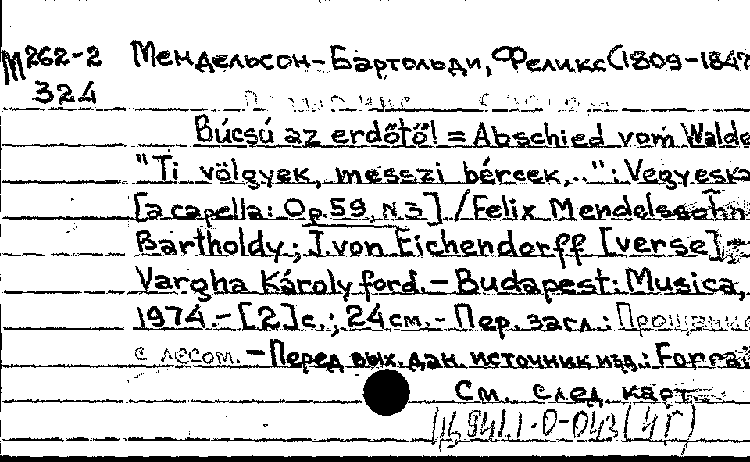 М262-2 Мендельсон-Бартольди, Феликс (1809-1847
324
Búcsú az erdőtől = Abschied vom Walde
"Ti völgyek, messzi bércek,..": Vegyeska
[a capella: Op.59, N.3] / Felix Mendelssohn
Bartholdy; J. von Eichendorff [verse] -
Vargha Károly ford. - Budapest: Musica,
1974. - [2] с.; 24 см. - Пер. загл.: Прощание
с лесом. - Перед вых. дан. источник изд.: Forrai
См. след. карт.